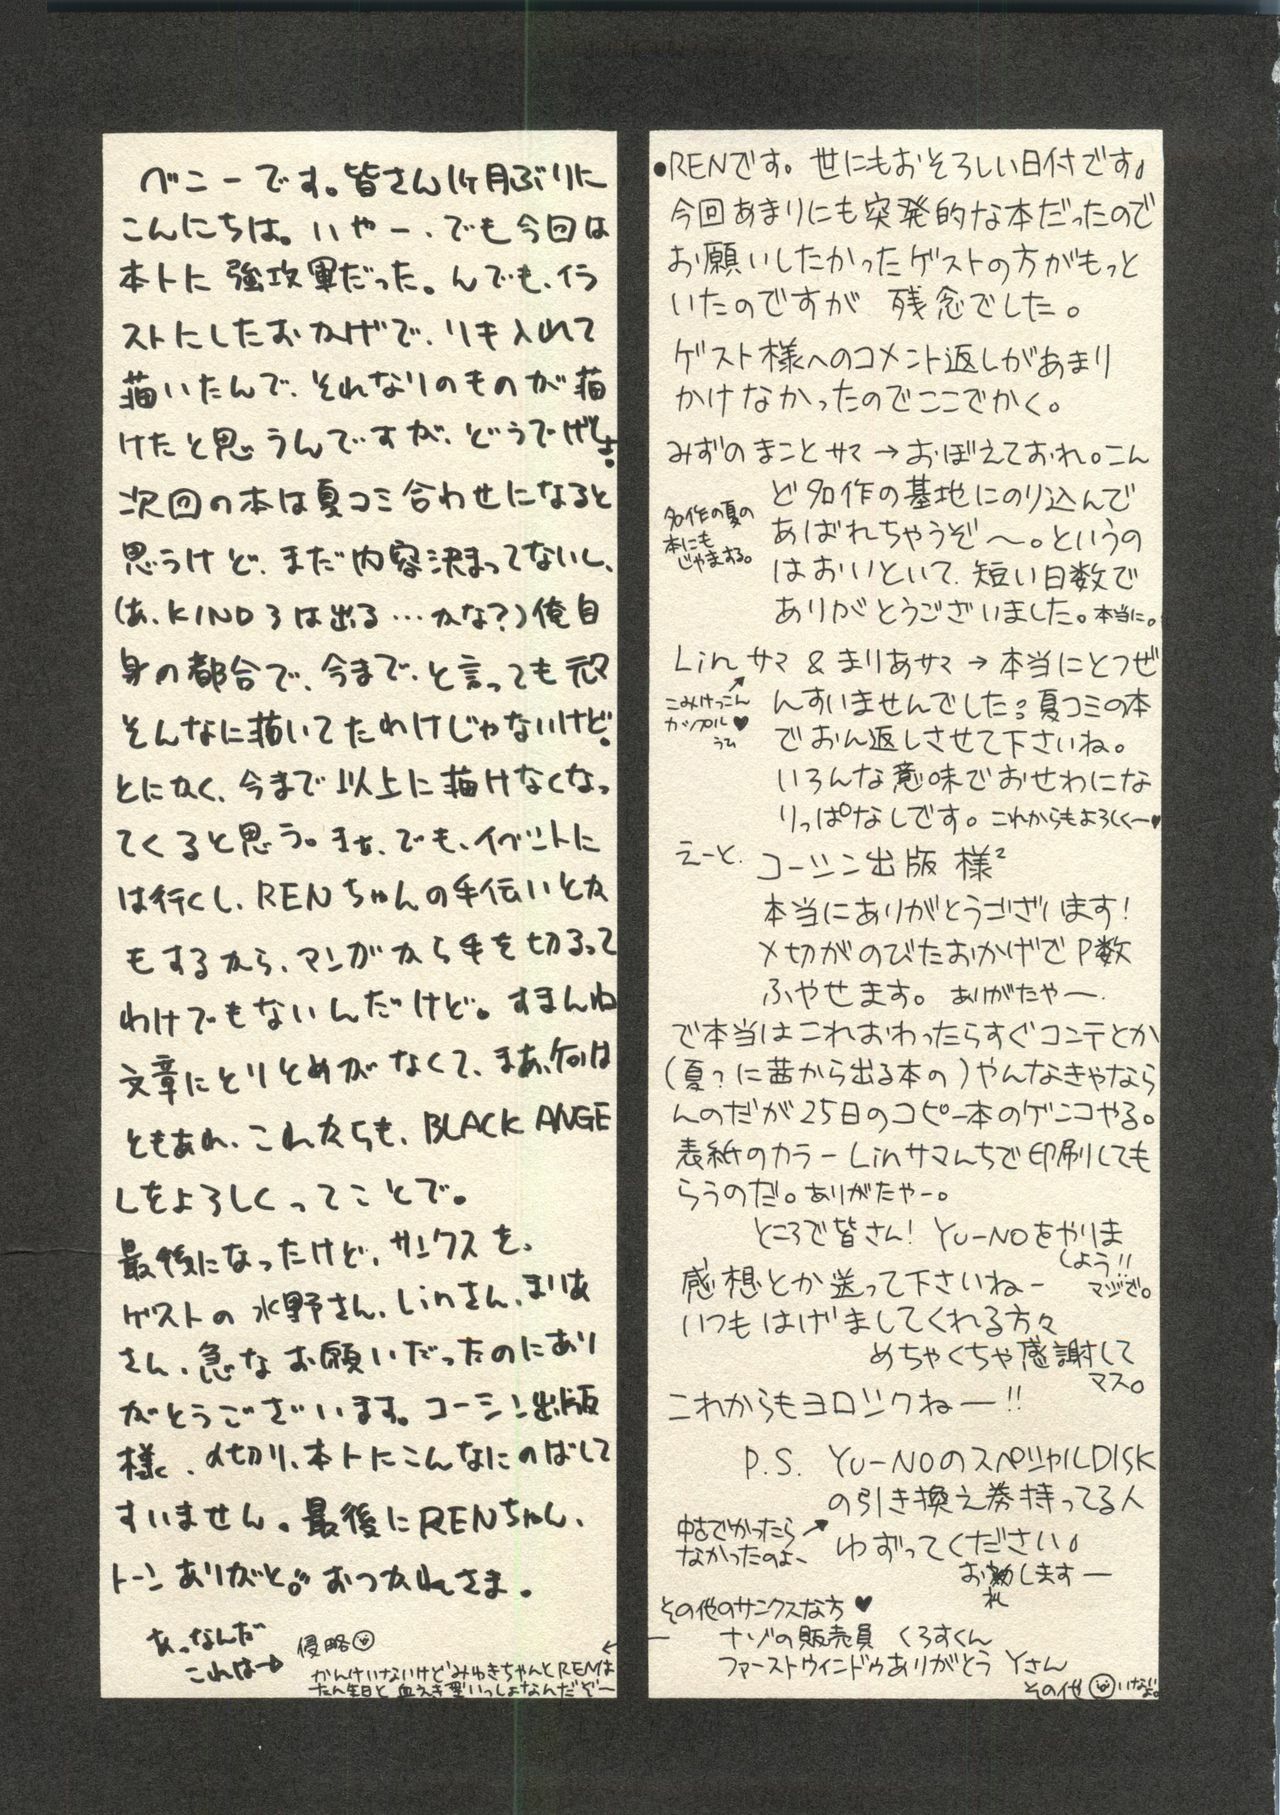 ベニーです。皆さん1ヶ月ぶりに
こんにちは。いやー、でも今回は
本トに強攻軍だった。んでも、イラ
ストにしたおかげで、リキ入れて
描いたんで、それなりのものが描
けたと思うんですが、どうでげしょ。
次回の本は夏コミ合わせになると
思うけど、まだ内容決まってないし、
(あ、KIND3は出る…かな?)俺自
身の都合で、今まで、と言っても元々
そんなに描いてたわけじゃないけど。
とにかく、今まで以上に描けなくなっ
てくると思う。まぁ、でも、イベントに
は行くし、RENちゃんの手伝いとか
もするから、マンガから手を切るって
わけでもないんだけど。すまんね
文章にとりとめがなくて、まあ、何は
ともあれ、これからも、BLACK ANGE
Lをよろしくってことで。
最後になったけど、サンクスを、
ゲストの水野さん、Linさん、まりあ
さん、急なお願いだったのにあり
がとうございます。コーシン出版
様、〆切り、本トにこんなにのばして
すいません。最後にRENちゃん、
トーンありがと。おつかれさま。
あっなんだ
これは→
侵略
かんけいないけどみゆきちゃんとRENは
たん生日と血えき型いっしょなんだぞー
●RENです。世にもおそろしい日付です。
今回あまりにも突発的な本だったので
お願いしたかったゲストの方がもっと
いたのですが 残念でした。
ゲスト様へのコメント返しがあまり
かけなかったのでここでかく。
みずのまことサマ→おぼえておれ。こん
ど名作の基地にのり込んで
あばれちゃうぞ〜。というの
はおいといて、短い日数で
ありがとうございました。本当に。
名作の夏の
本にも
じゃまする。
Linサマ&まりあサマ→本当にとつぜ
んすいませんでした。夏コミの本
でおん返しさせて下さいね。
いろんな意味でおせわにな
りっぱなしです。これからもよろしく〜♥
こみけっこん
カップル♥
うむ
えーと、コーシン出版 様²
本当にありがとうございます!
〆切がのびたおかげでP数
ふやせます。ありがたやー。
で本当はこれおわったらすぐコンテとか
(夏?に茜から出る本の)やんなきゃなら
んのだが25日のコピー本のゲンコやる。
表紙のカラーLinサマんちで印刷しても
らうのだ。ありがたやー。
ところで皆さん! YU-NOをやりま
しょう!!
マジで。
感想とか送って下さいねー
いつもはげましてくれる方々
めちゃくちゃ感謝して
マス。
これからもヨロシクねー!!
P.S. YU-NOのスペシャルDISK
の引き換え券持ってる人
ゆずってください。
お礼します―
中古でかったら
なかったのよ、
その他のサンクスな方♥
ナゾの販売員 くろすくん
ファーストウィンドゥありがとう Yさん
その他 いないよ。